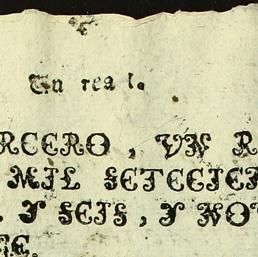 Un real.
RCERO, VN R
MIL SETECIEN
, Y SEIS, Y NOV